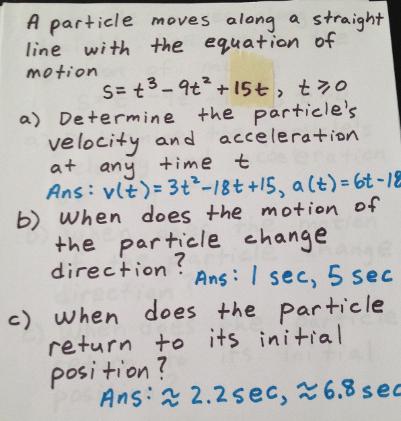 A particle moves along a straight
line with the equation of
motion
s = t³ - 9t² + 15t, t ≥ 0
a) Determine the particle's
velocity and acceleration
at any time t
Ans: v(t) = 3t² - 18t + 15, a(t) = 6t - 18
b) When does the motion of
the particle change
direction? Ans: 1 sec, 5 sec
c) When does the particle
return to its initial
position?
Ans: ≈ 2.2 sec, ≈ 6.8 sec